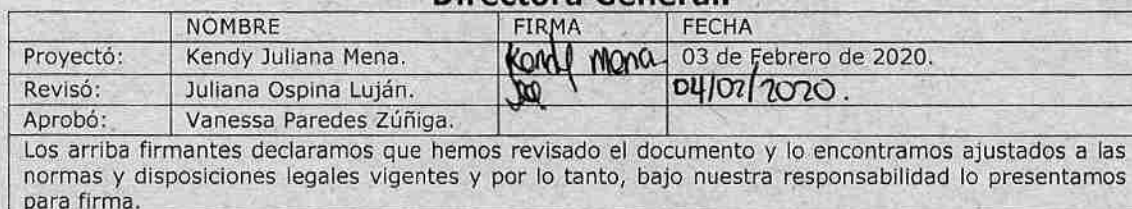 Directora General.
NOMBRE FIRMA FECHA
Proyectó: Kendy Juliana Mena. Kendy Mena 03 de Febrero de 2020.
Revisó: Juliana Ospina Luján. 04/02/2020.
Aprobó: Vanessa Paredes Zúñiga.
Los arriba firmantes declaramos que hemos revisado el documento y lo encontramos ajustados a las
normas y disposiciones legales vigentes y por lo tanto, bajo nuestra responsabilidad lo presentamos
para firma.